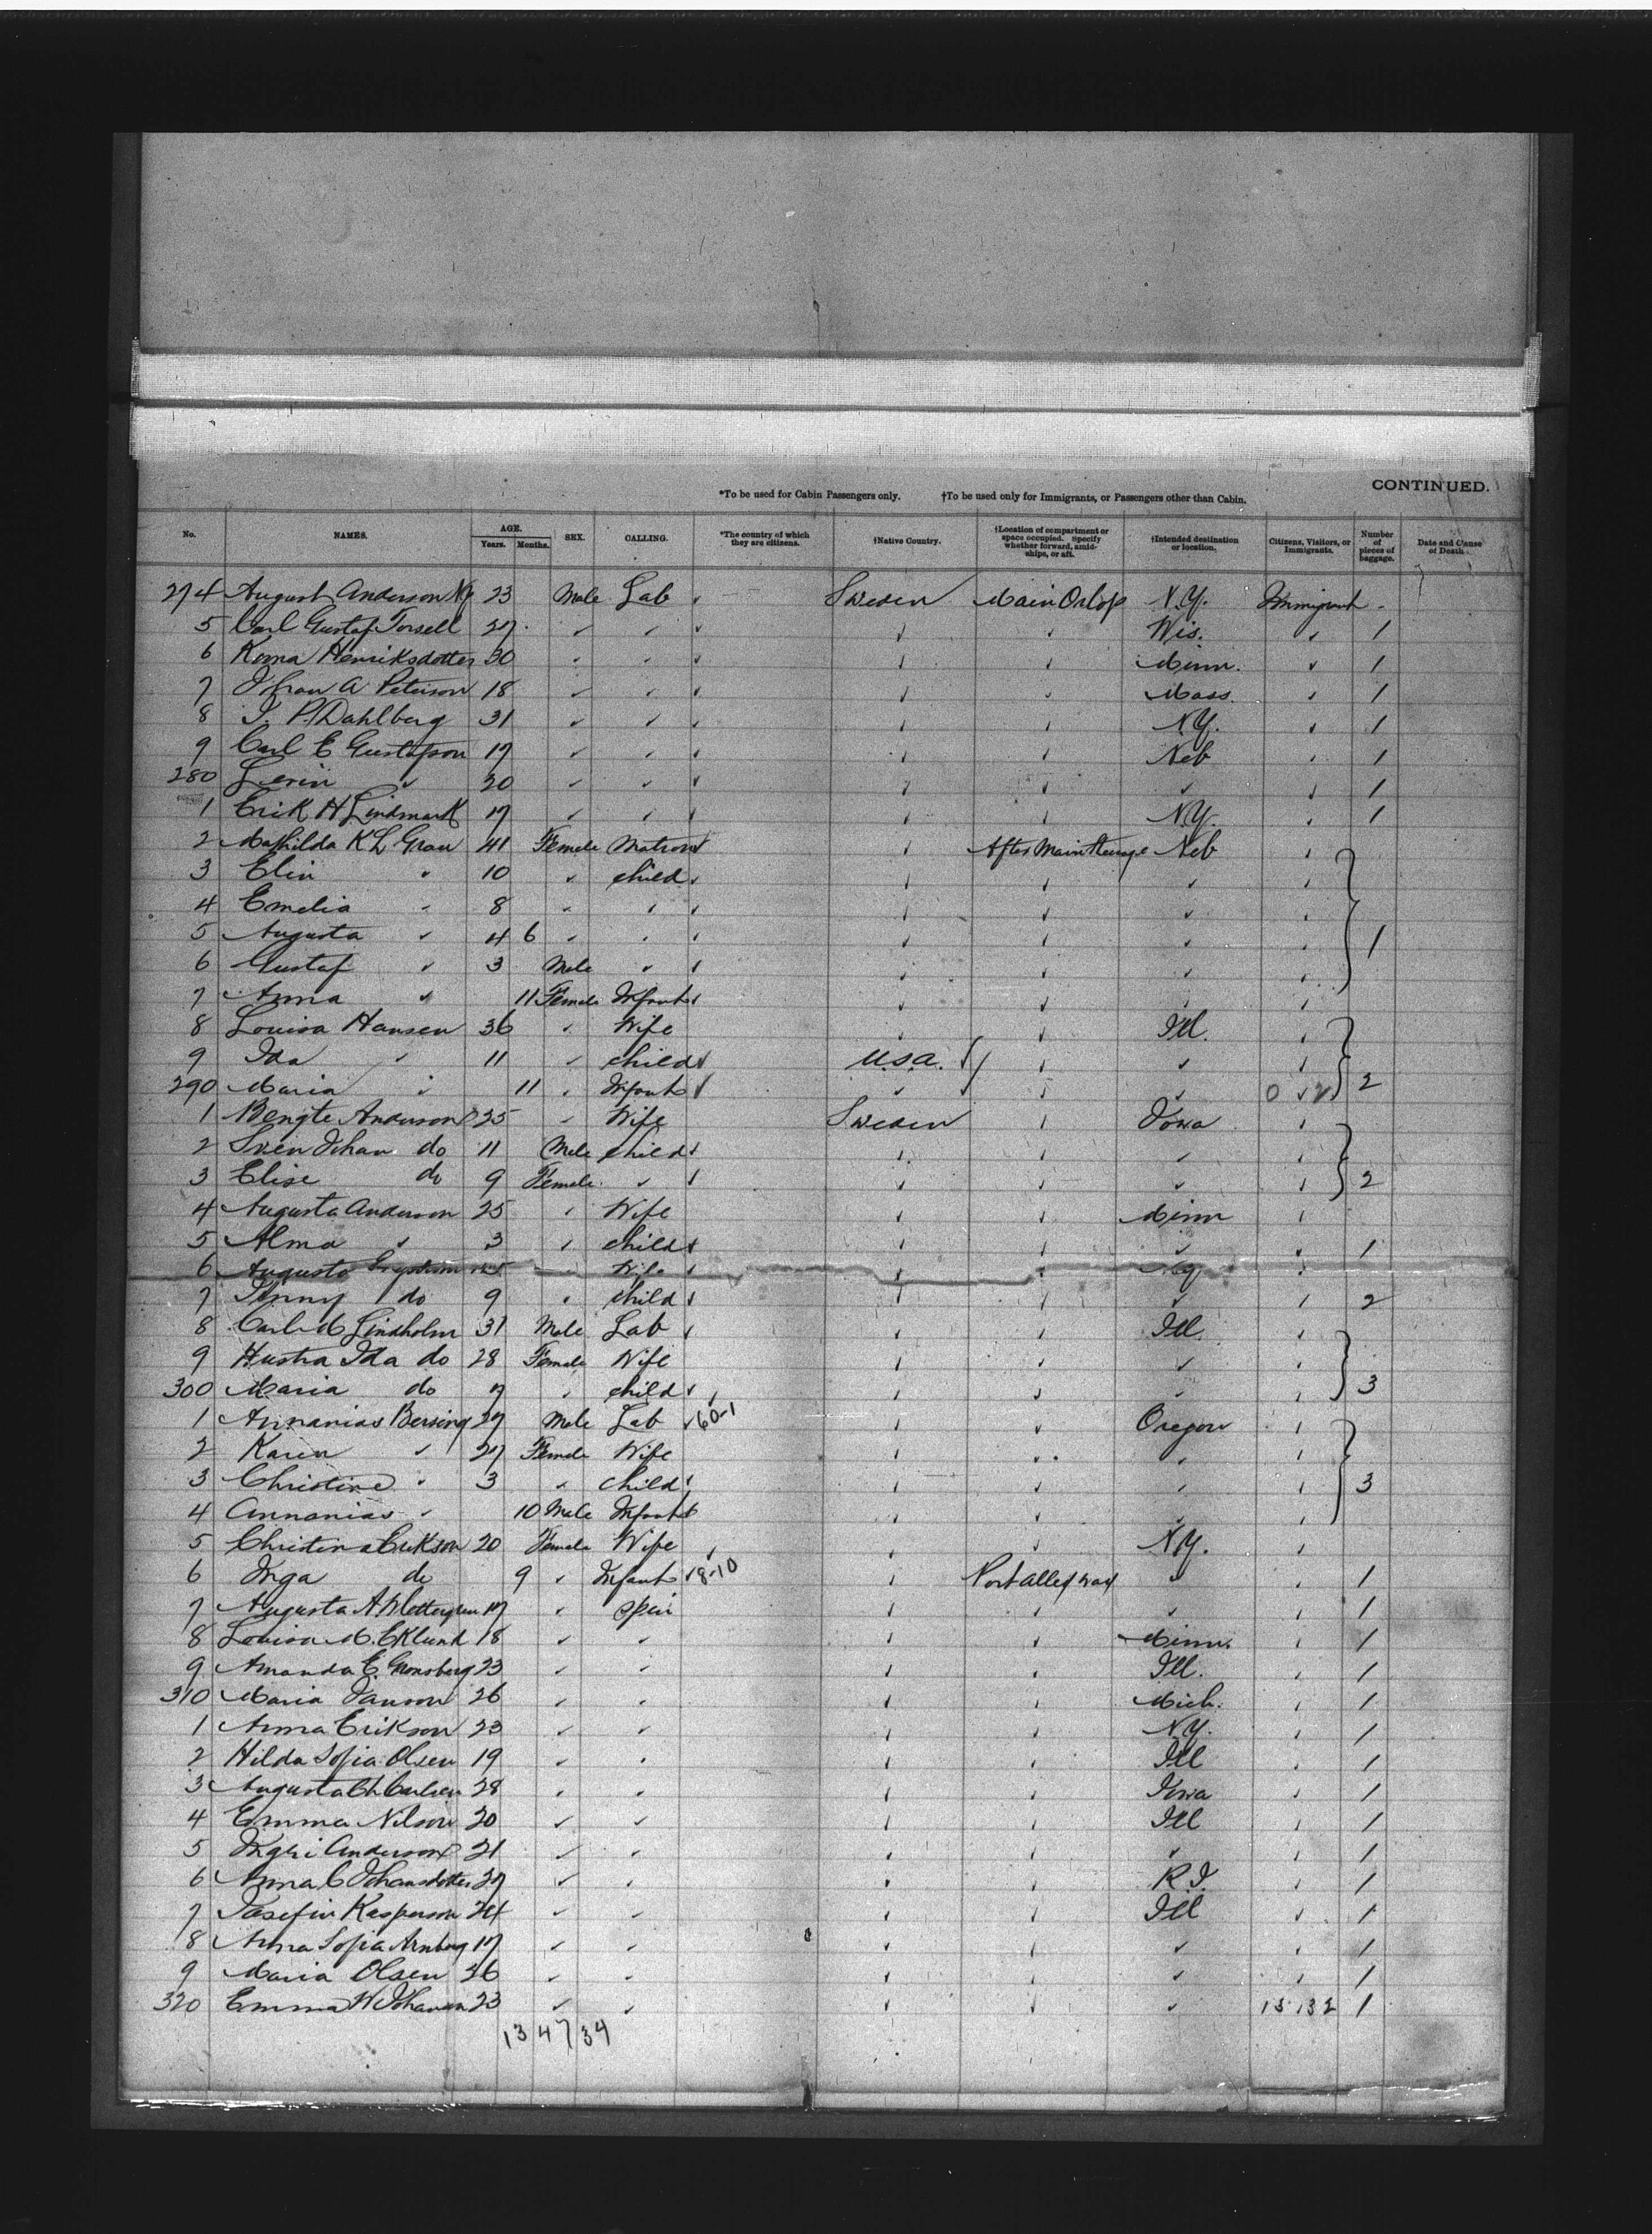 CONTINUED.
*To be used for Cabin Passengers only. †To be used only for Immigrants, or Passengers other than Cabin.
No. NAMES. AGE. Years. Months. SEX. CALLING. *The country of which they are citizens. †Native Country. †Location of compartment or space occupied. Specify whether forward, amidships, or aft. †Intended destination or location. Citizens, Visitors, or Immigrants. Number of pieces of baggage. Date and Cause of Death.
274 August Anderson 23 Male Lab Sweden Main Orlop N.Y. Immigrant
5 Carl Gustaf Torsell 27 Wis. 1
6 Henriksdotter 30 Minn. 1
7 Johan A Peterson 18 Mass. 1
8 J. P. Dahlberg 31 N.Y. 1
9 Carl E Gustafson 17 Neb 1
280 20 1
1 Erik H Lindmark 17 N.Y. 1
2 Mathilda K L Grau 41 Female Matron After Main Neb
3 Elin 10 child
4 Emelia 8
5 Augusta 4 6 1
6 Gustaf 3 Male
7 Anna 11 Female Infant
8 Louisa Hansen 36 Wife Ill.
9 Ida 11 child U.S.A.
290 Maria 11 Infant 2
1 Bengte Anderson 25 Wife Sweden Iowa
2 Sven Johan do 11 Male child
3 Elise do 9 Female 2
4 Augusta Anderson 25 Wife Minn
5 Alma 3 child 1
6 Augusta Wife
7 Jenny do 9 child 2
8 Carl M Lindholm 31 Male Lab Ill.
9 Hustra Ida do 28 Female Wife
300 Maria do 7 child 3
1 Annanias Bersing 27 Male Lab 60-1 Oregon
2 Karen 27 Female Wife
3 Christine 3 child 3
4 Annanias 10 Male Infant
5 Christina Erikson 20 Female Wife N.Y.
6 Inga do 9 Infant 8-10 Port alley way 1
7 Augusta A 17 Spin 1
8 Louisa M. Eklund 18 Minn. 1
9 Amanda E. Gronsberg 23 Ill. 1
310 Maria Janson 26 Mich. 1
1 Anna Erikson 23 N.Y. 1
2 Hilda Sofia Olsen 19 Ill 1
3 Augusta Carlsen 28 Iowa 1
4 Emma Nilson 20 Ill 1
5 Ingri Anderson 21 1
6 Anna C Johansdotter 27 R.I. 1
7 Josefin Kasperson 24 Ill 1
8 Anna Sofia Arnberg 17 1
9 Maria Olsen 26 1
320 Emma W Johansen 23 1
13 47 34